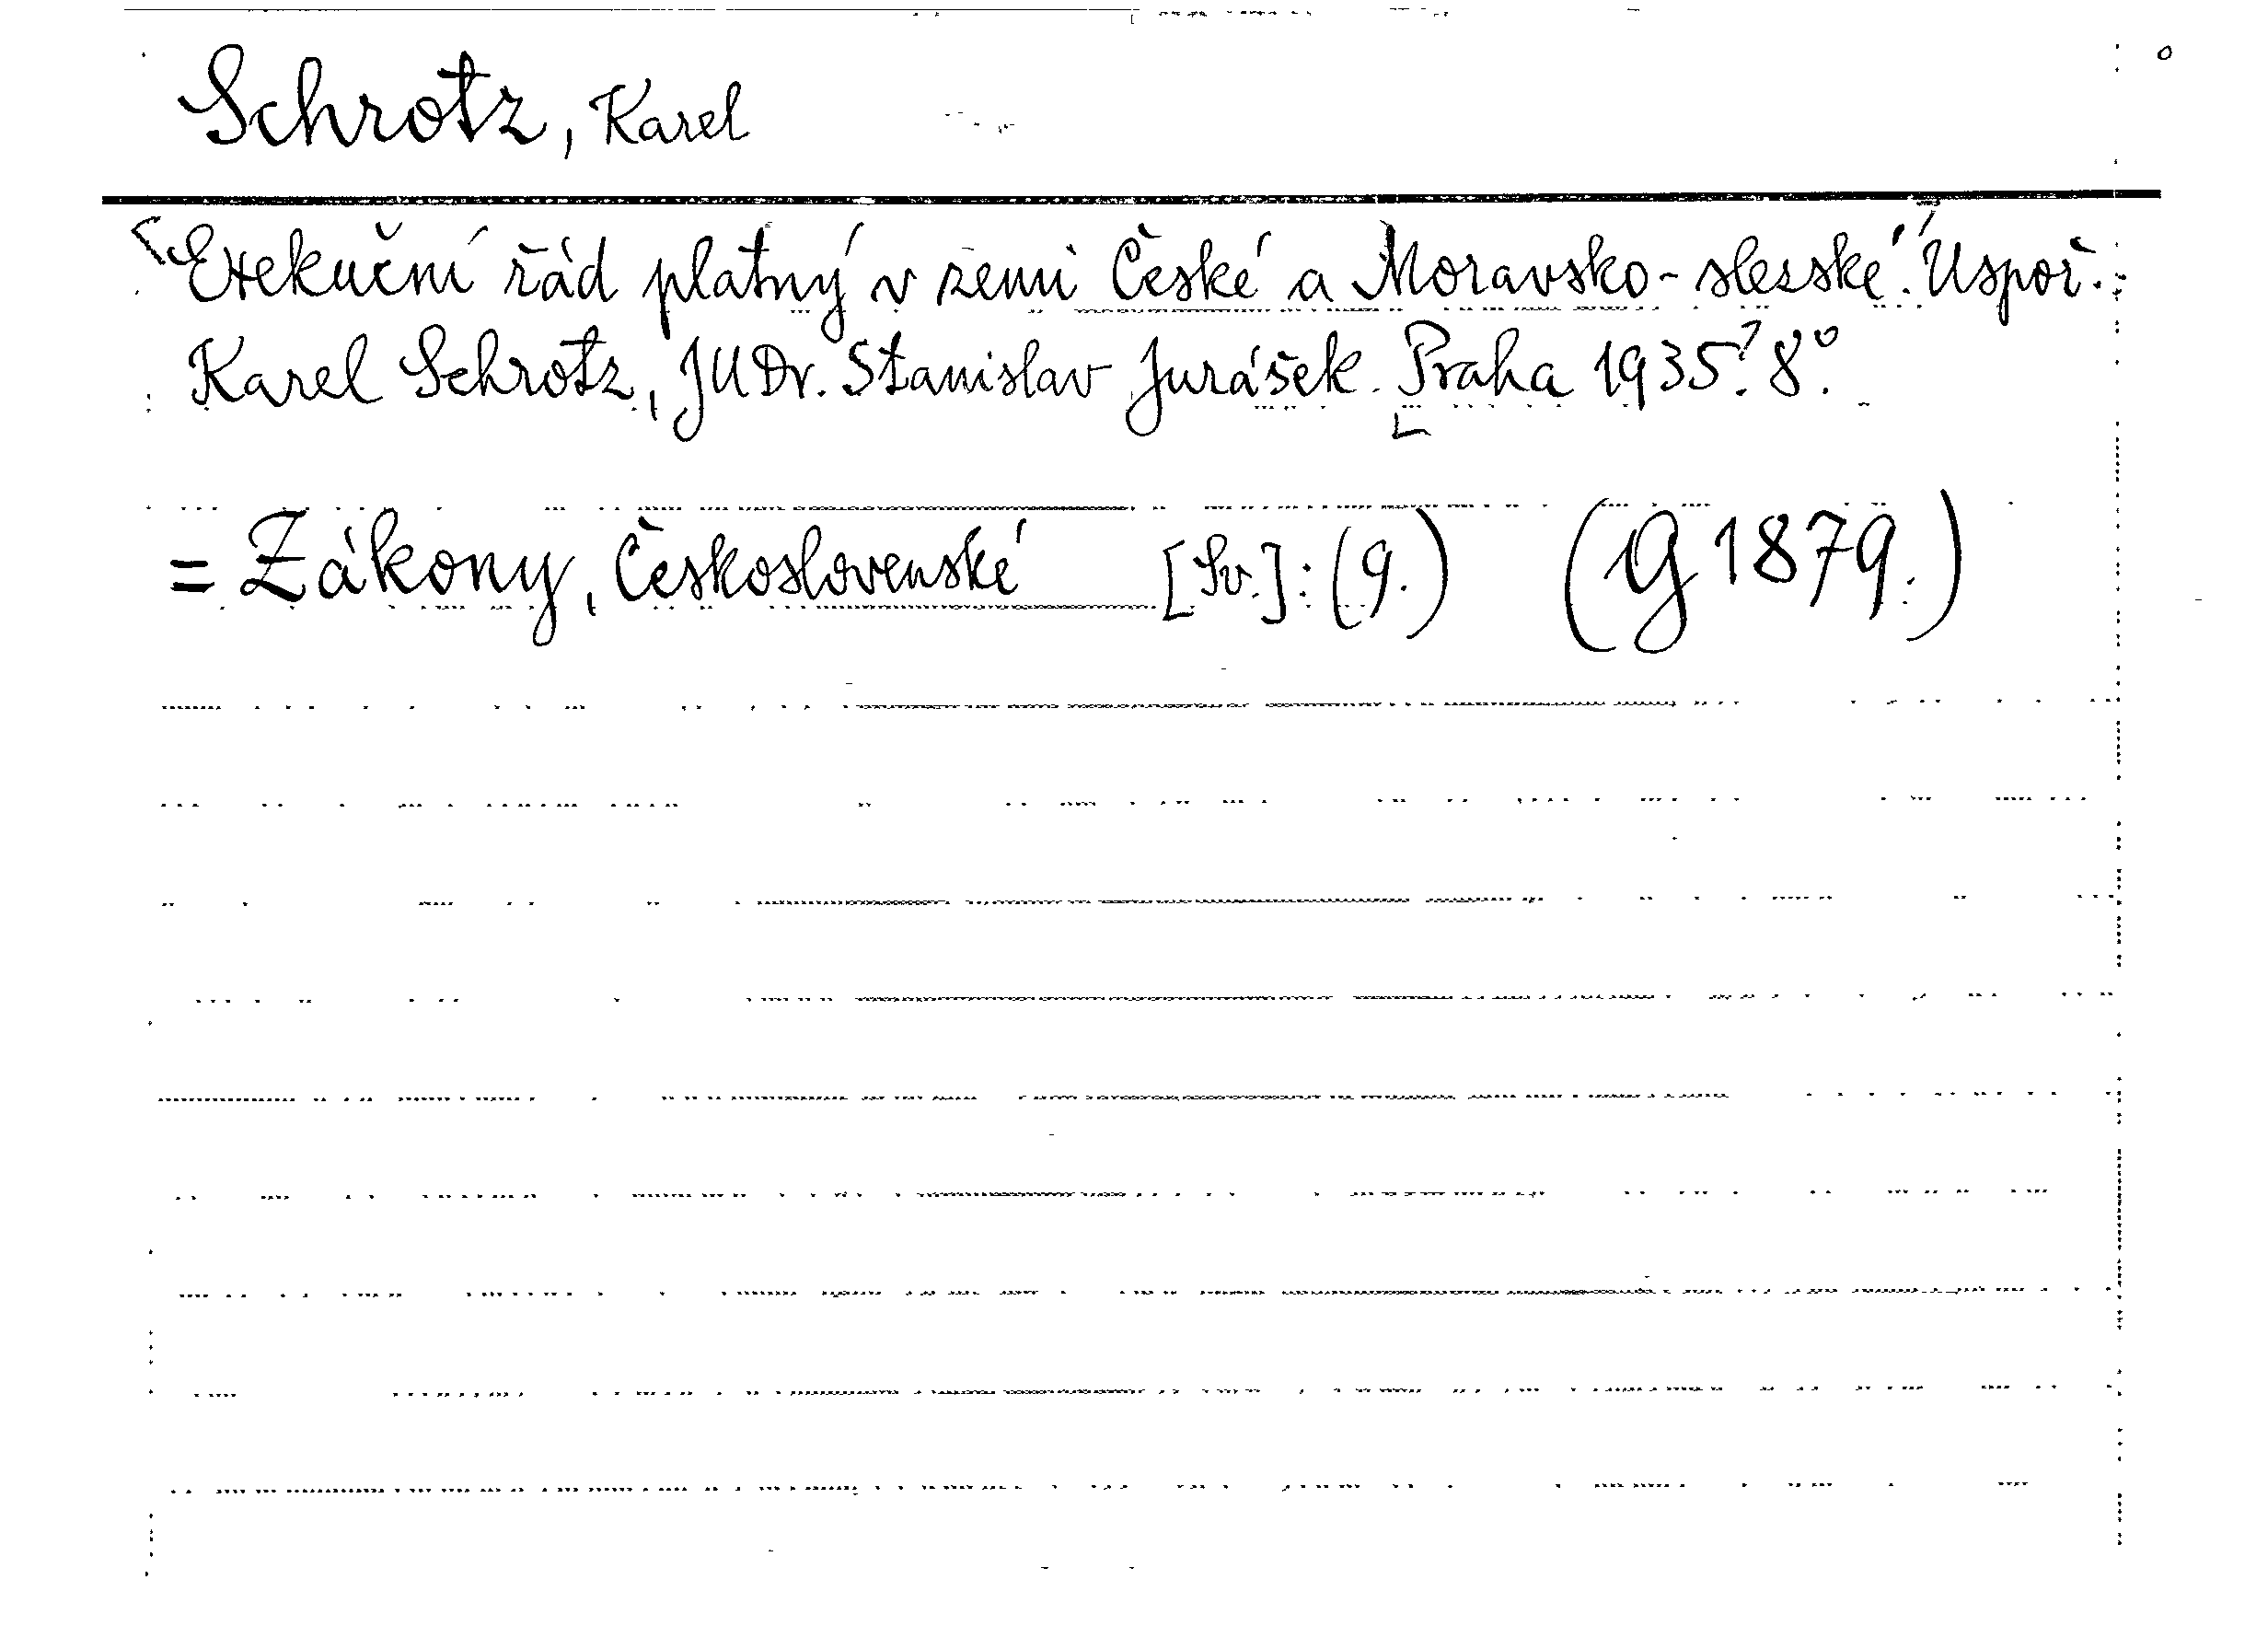 Schrotz, Karel
Exekuční řád platný v zemi České a Moravsko-slezské. Uspoř.
Karel Schrotz, JUDr. Stanislav Jurášek. Praha 1935. 8°.
= Zákony, Československé [Sv.]: (9.) (G 1879.)